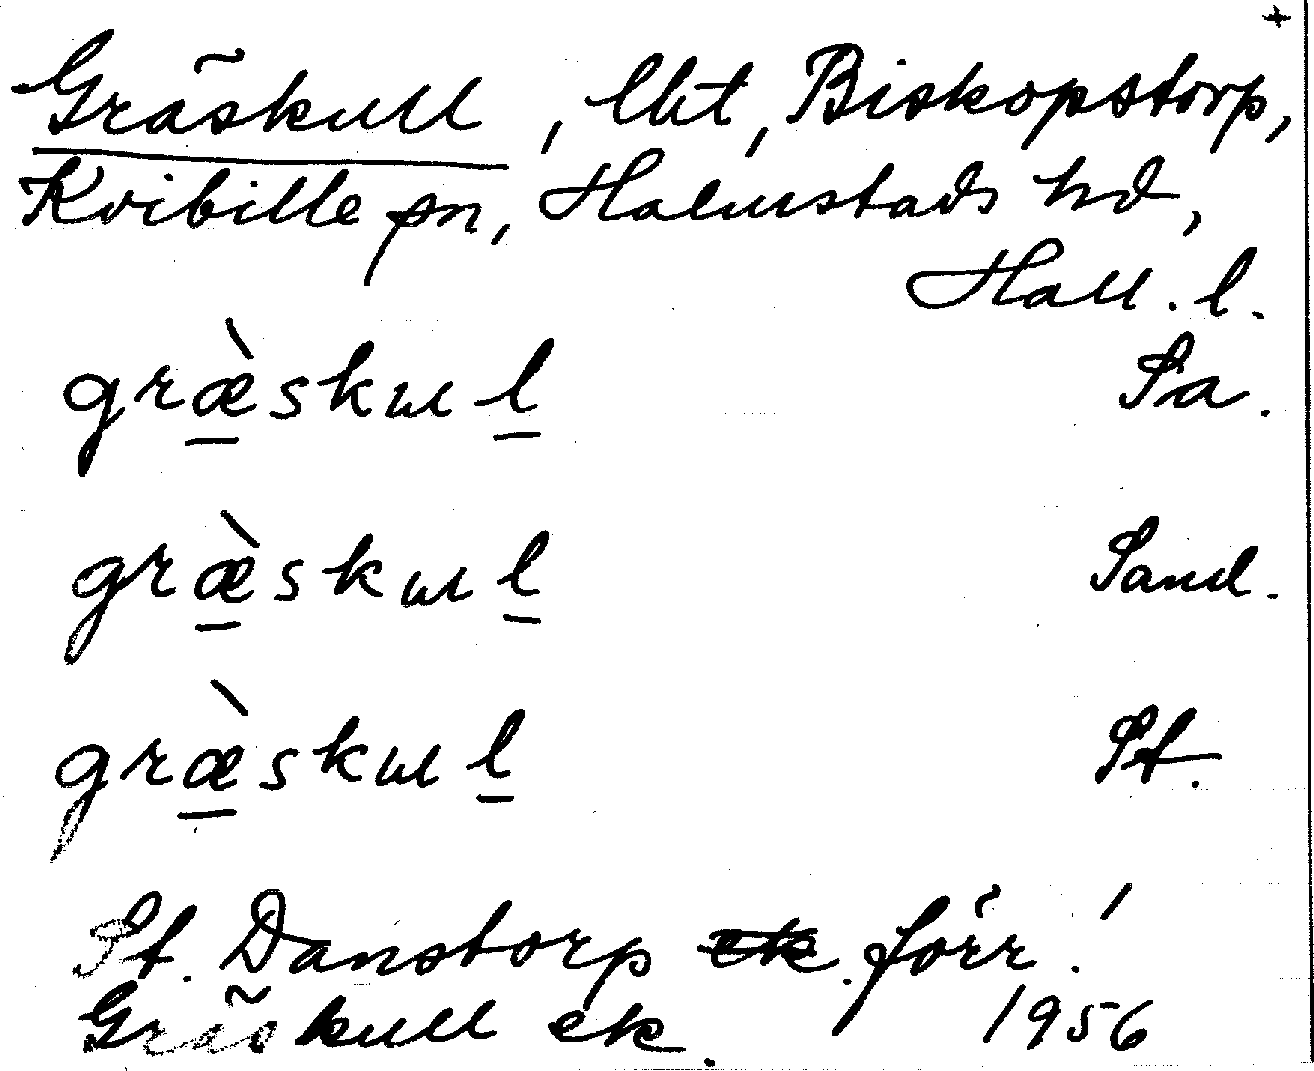 +
Gräskull, lht, Biskopstorp,
Kvibille sn, Halmstads hd,
Hall. l.
græ̀skul Sa.
græ̀skul Sand.
græ̀skul St.
St. Danstorp förr!
Gräskull ek. 1956